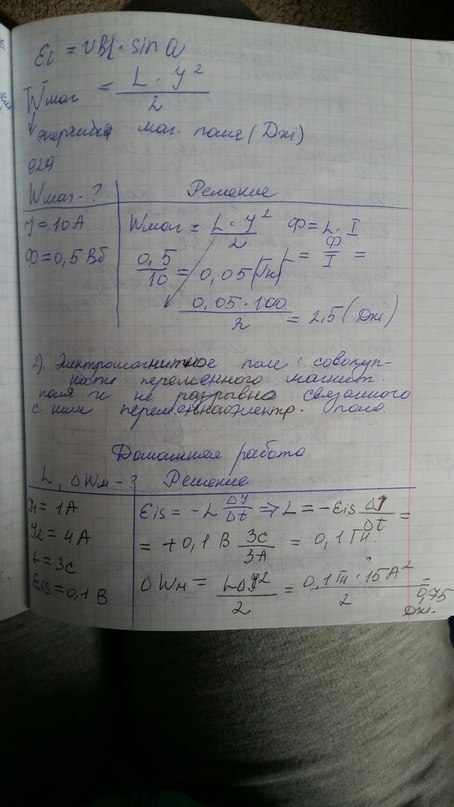 Ei = υBl · sin α
Wмаг = L · У² / 2
энергия маг. поля (Дж)
929
Wмаг - ? Решение
У = 10 А Wмаг = L · У² / 2 Ф = L · I
Ф = 0,5 Вб 0,5 / 10 = 0,05 (Гн) L = Ф / I =
0,05 · 100 / 2 = 2,5 (Дж)
2) Электромагнитное поле: совокуп-
ность переменного магнит.
поля и не разрывно связанного
с ним переменного электр. поля
Домашняя работа.
L, ΔWм - ? Решение
У1 = 1 А Eis = - L ΔУ / Δt ⇒ L = - Eis ΔУ / Δt =
У2 = 4 А = + 0,1 В 3с / 3А = 0,1 Гн.
t = 3с ΔWм = LΔУ² / 2 = 0,1 Гн · 15 А² / 2 = 0,75
Eis = 0,1 В Дж.